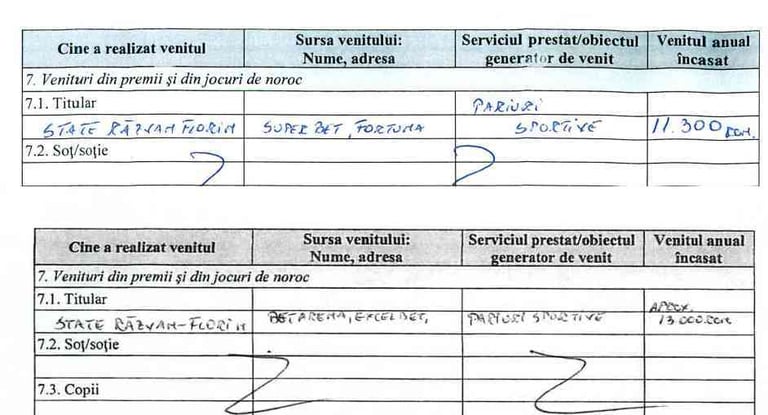 Cine a realizat venitul Sursa venitului: Nume, adresa Serviciul prestat/obiectul generator de venit Venitul anual încasat
7. Venituri din premii și din jocuri de noroc
7.1. Titular PARIURI
STATE RĂZVAN FLORIN SUPERBET, FORTUNA SPORTIVE 11.300 RON.
7.2. Soț/soție
Cine a realizat venitul Sursa venitului: Nume, adresa Serviciul prestat/obiectul generator de venit Venitul anual încasat
7. Venituri din premii și din jocuri de noroc
7.1. Titular APROX.
STATE RĂZVAN-FLORIN BETARENA, EXCELBET, PARIURI SPORTIVE 13.000 RON
7.2. Soț/soție
7.3. Copii